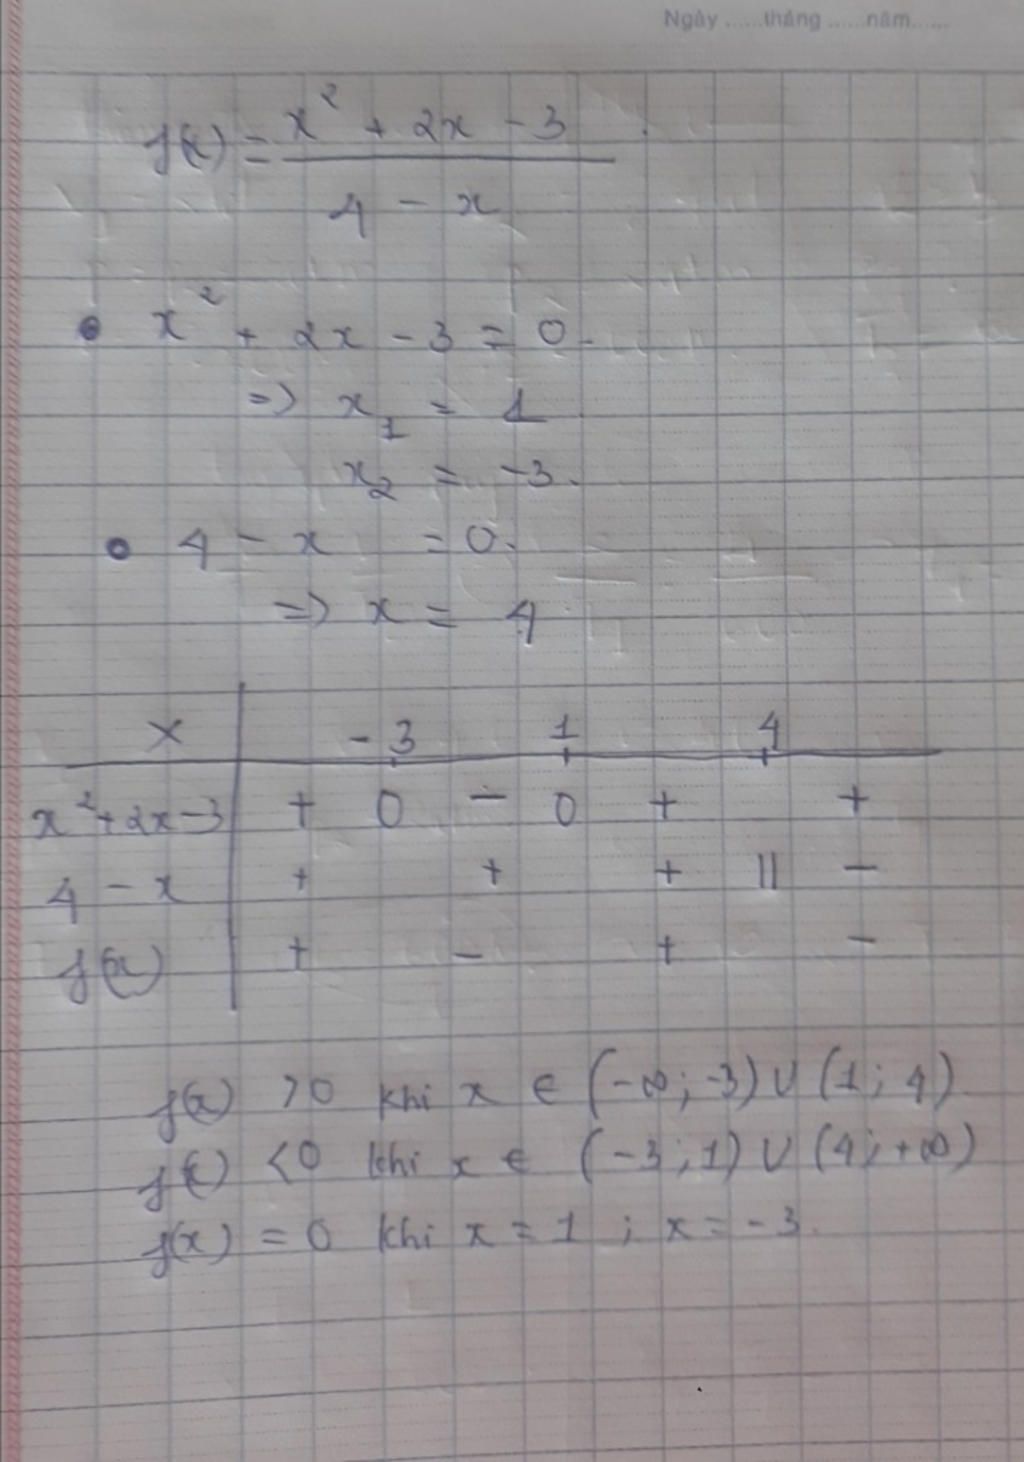 Ngày ......tháng ......năm......
f(x) = x² + 2x - 3
4 - x
• x² + 2x - 3 = 0.
=> x₁ = 1
x₂ = -3.
• 4 - x = 0.
=> x = 4
x | -3 1 4
x²+2x-3 | + 0 - 0 + +
4 - x | + + + || -
f(x) | + - + -
f(x) >0 khi x ∈ (-∞; -3) ∪ (1; 4)
f(x) <0 khi x ∈ (-3; 1) ∪ (4; +∞)
f(x) = 0 khi x = 1 ; x = -3.